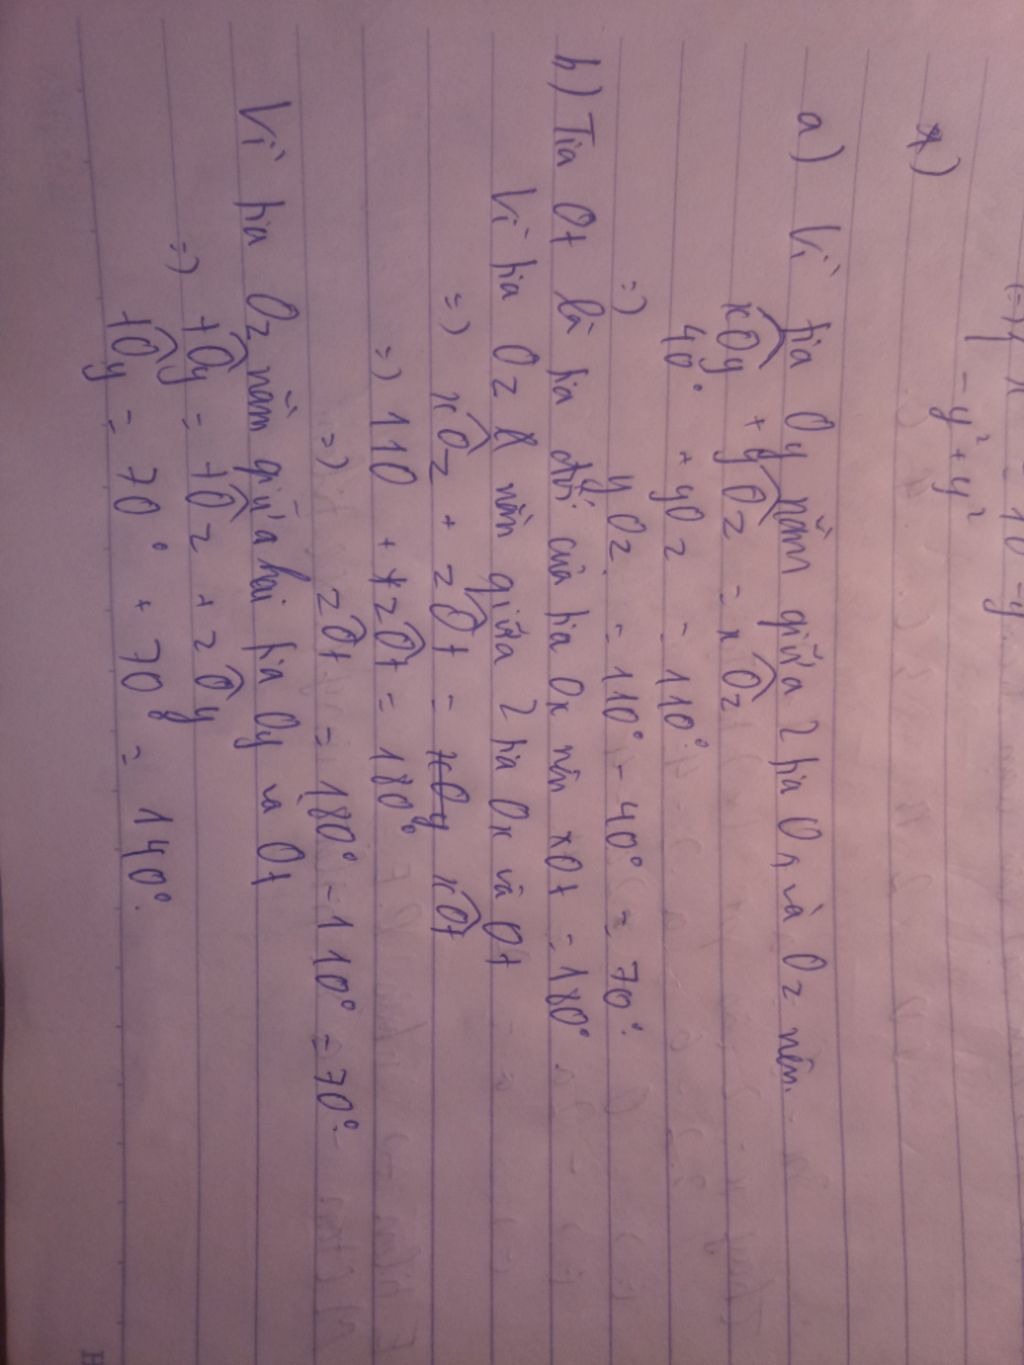 - y² + y²
a) Vì tia Oy nằm giữa 2 tia Ox và Oz nên
xOy + yOz = xOz
40° + yOz = 110°
=> yOz = 110° - 40° = 70°.
b) Tia Ot là tia đối của tia Ox nên xOt = 180°
Vì tia Oz nằm giữa 2 tia Ox và Ot
=> xOz + zOt = xOy xOt
=> 110 + zOt = 180°
=> zOt = 180° - 110° = 70°.
Vì tia Oz nằm giữa hai tia Oy và Ot
=> tOy = tOz + zOy
tOy = 70° + 70 = 140°.